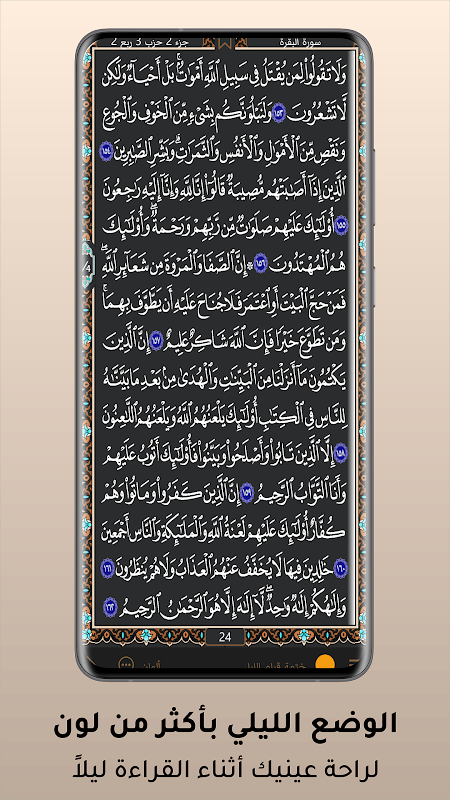 سورة البقرة جزء 2 حزب 3 ربع 2
وَلَا تَقُولُواْ لِمَن يُقْتَلُ فِي سَبِيلِ اللَّهِ أَمْوَٰتٌۢ بَلْ أَحْيَآءٌ وَلَٰكِن
لَّا تَشْعُرُونَ ١٥٣ وَلَنَبْلُوَنَّكُم بِشَيْءٍ مِّنَ ٱلْخَوْفِ وَٱلْجُوعِ
وَنَقْصٍ مِّنَ ٱلْأَمْوَٰلِ وَٱلْأَنفُسِ وَٱلثَّمَرَٰتِ وَبَشِّرِ ٱلصَّٰبِرِينَ ١٥٤
ٱلَّذِينَ إِذَآ أَصَٰبَتْهُم مُّصِيبَةٌ قَالُوٓاْ إِنَّا لِلَّهِ وَإِنَّآ إِلَيْهِ رَٰجِعُونَ
١٥٥ أُوْلَٰٓئِكَ عَلَيْهِمْ صَلَوَٰتٌ مِّن رَّبِّهِمْ وَرَحْمَةٌ وَأُوْلَٰٓئِكَ
هُمُ ٱلْمُهْتَدُونَ ١٥٦ ۞إِنَّ ٱلصَّفَا وَٱلْمَرْوَةَ مِن شَعَآئِرِ ٱللَّهِ
فَمَنْ حَجَّ ٱلْبَيْتَ أَوِ ٱعْتَمَرَ فَلَا جُنَاحَ عَلَيْهِ أَن يَطَّوَّفَ بِهِمَا
وَمَن تَطَوَّعَ خَيْرًا فَإِنَّ ٱللَّهَ شَاكِرٌ عَلِيمٌ ١٥٧ إِنَّ ٱلَّذِينَ
يَكْتُمُونَ مَآ أَنزَلْنَا مِنَ ٱلْبَيِّنَٰتِ وَٱلْهُدَىٰ مِنۢ بَعْدِ مَا بَيَّنَّٰهُ
لِلنَّاسِ فِي ٱلْكِتَٰبِ أُوْلَٰٓئِكَ يَلْعَنُهُمُ ٱللَّهُ وَيَلْعَنُهُمُ ٱللَّٰعِنُونَ
١٥٨ إِلَّا ٱلَّذِينَ تَابُواْ وَأَصْلَحُواْ وَبَيَّنُواْ فَأُوْلَٰٓئِكَ أَتُوبُ عَلَيْهِمْ
وَأَنَا ٱلتَّوَّابُ ٱلرَّحِيمُ ١٥٩ إِنَّ ٱلَّذِينَ كَفَرُواْ وَمَاتُواْ وَهُمْ
كُفَّارٌ أُوْلَٰٓئِكَ عَلَيْهِمْ لَعْنَةُ ٱللَّهِ وَٱلْمَلَٰٓئِكَةِ وَٱلنَّاسِ أَجْمَعِينَ
١٦٠ خَٰلِدِينَ فِيهَا لَا يُخَفَّفُ عَنْهُمُ ٱلْعَذَابُ وَلَا هُمْ يُنظَرُونَ ١٦١
وَإِلَٰهُكُمْ إِلَٰهٌ وَٰحِدٌ لَّآ إِلَٰهَ إِلَّا هُوَ ٱلرَّحْمَٰنُ ٱلرَّحِيمُ ١٦٢
24
الوضع الليلي بأكثر من لون
لراحة عينيك أثناء القراءة ليلاً